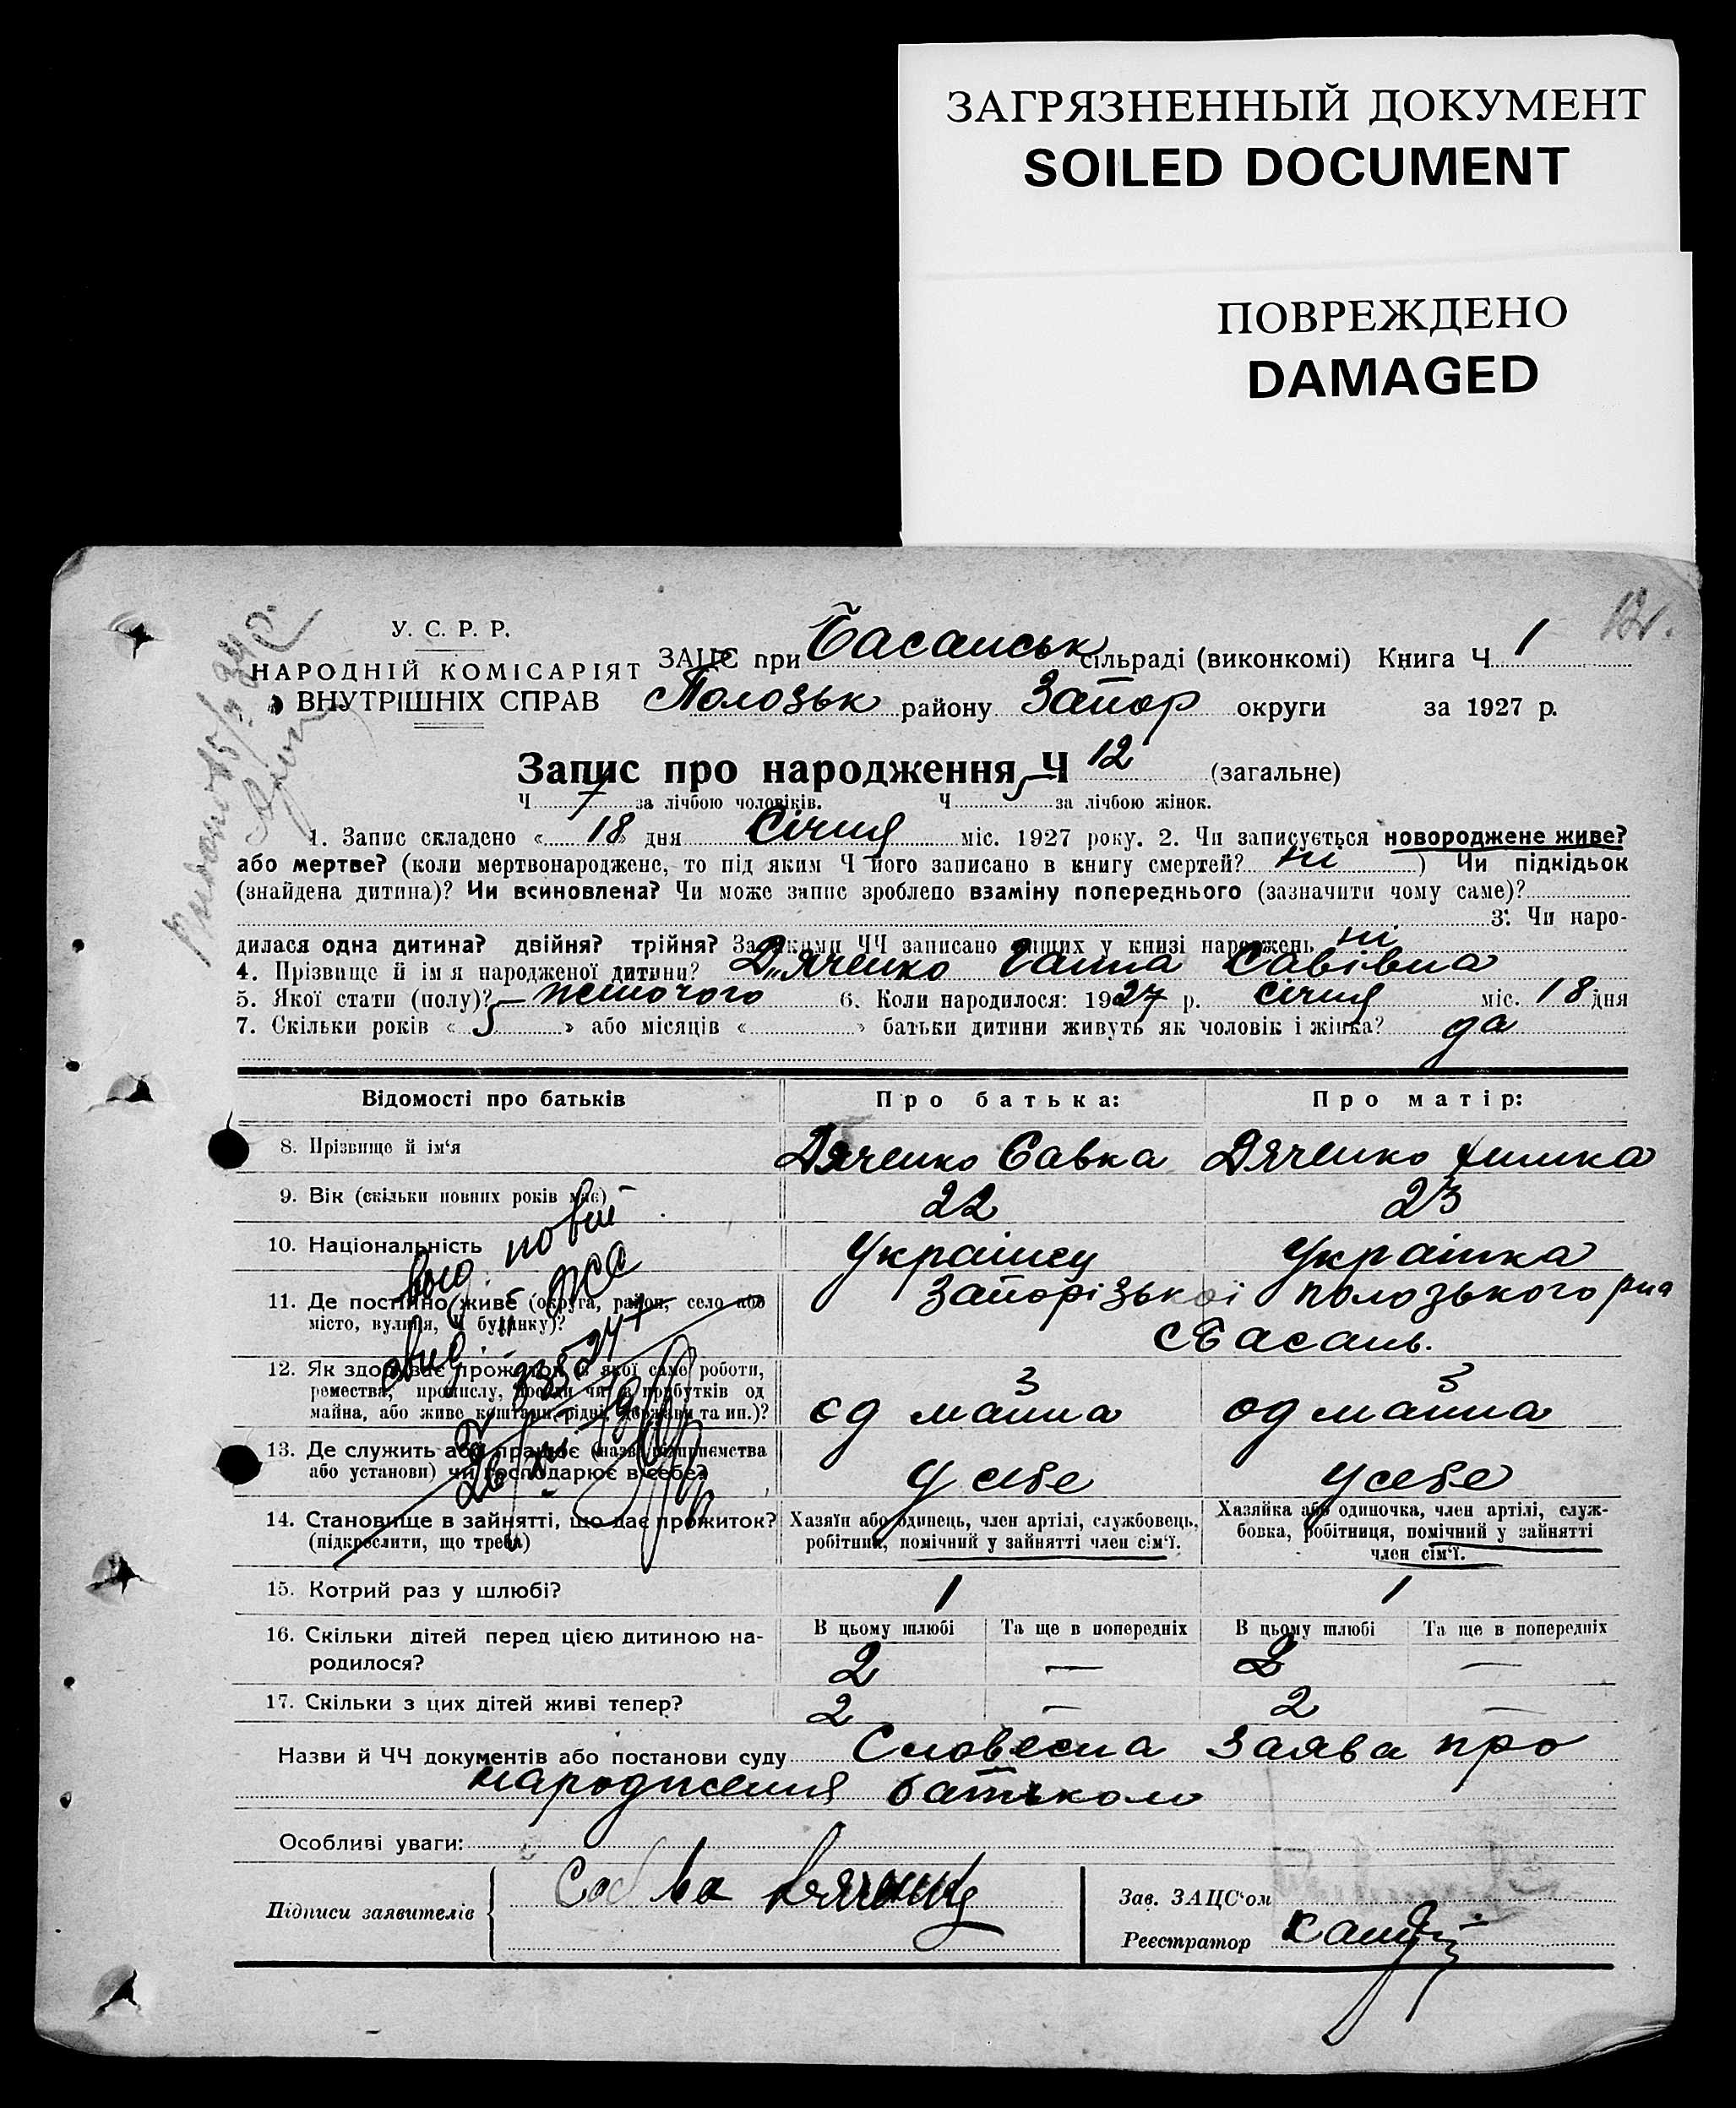 ЗАГРЯЗНЕННЫЙ ДОКУМЕНТ
SOILED DOCUMENT
ПОВРЕЖДЕНО
DAMAGED
12.
У. С. Р. Р.
НАРОДНІЙ КОМІСАРІЯТ
ВНУТРІШНІХ СПРАВ
ЗАЦС при Басанськ сільраді (виконкомі) Книга Ч 1
Полозьк району Запор округи за 1927 р.
Запис про народження Ч 12 (загальне)
Ч 7 за лічбою чоловіків. Ч 5 за лічбою жінок.
1. Запис складено « 18 » дня Січня міс. 1927 року. 2. Чи записується новороджене живе?
або мертве? (коли мертвонароджене, то під яким Ч його записано в книгу смертей? ні ) Чи підкідьок
(знайдена дитина)? Чи всиновлена? Чи може запис зроблено взаміну попереднього (зазначити чому саме)?
3. Чи наро-
дилася одна дитина? двійня? трійня? За якими ЧЧ записано інших у книзі народжень ні
4. Прізвище й ім'я народженої дитини? Дяченко Ганна Савівна
5. Якої стати (полу)? жіночого 6. Коли народилося: 1927 р. січня міс. 18 дня
7. Скільки років « 5 » або місяців « » батьки дитини живуть як чоловік і жінка? да
Відомості про батьків Про батька: Про матір:
8. Прізвище й ім'я Дяченко Савка Дяченко
9. Вік (скільки повних років має) 22 23
10. Національність Українец Українка
11. Де постійно живе (округа, район, село або Запорізької полозького рна
місто, вулиця, Ч будинку)? с Басань.
12. Як здобуває прожиток (з якої саме роботи, З З
ремества, промислу, посади чи з прибутків од
майна, або живе коштами рідні, держави та ин.)? од маина од маина
13. Де служить або працює (назва підприємства
або установи) чи господарює в себе? у себе у себе
14. Становище в зайнятті, що дає прожиток? Хазяїн або одинець, член артілі, службовець, Хазяйка або одиночка, член артілі, служ-
(підкреслити, що треба) робітник, помічний у зайнятті член сім'ї. бовка, робітниця, помічний у зайнятті
член сім'ї.
15. Котрий раз у шлюбі? 1 1
16. Скільки дітей перед цією дитиною на- В цьому шлюбі Та ще в попередніх В цьому шлюбі Та ще в попередніх
родилося? 2 — 2 —
17. Скільки з цих дітей живі тепер? 2 — 2 —
Назви й ЧЧ документів або постанови суду Словесна заява про
народження батьком
Особливі уваги:
Підписи заявителів Савва Дяченко
Зав. ЗАЦС'ом
Реєстратор